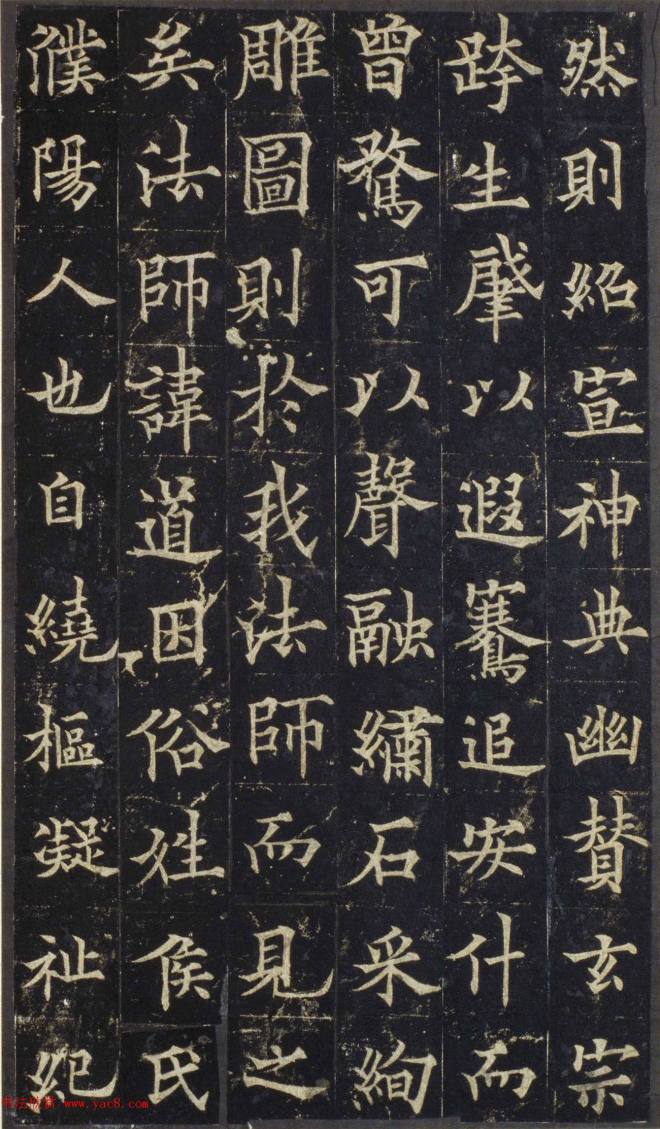 然則紹宣神典幽賛玄宗
跨生肇以遐騫追安什而
曾騖可以聲融繡石采絢
雕圖則於我法師而見之
矣法師諱道因俗姓侯氏
濮陽人也自繞樞凝祉紀
www.yac8.com